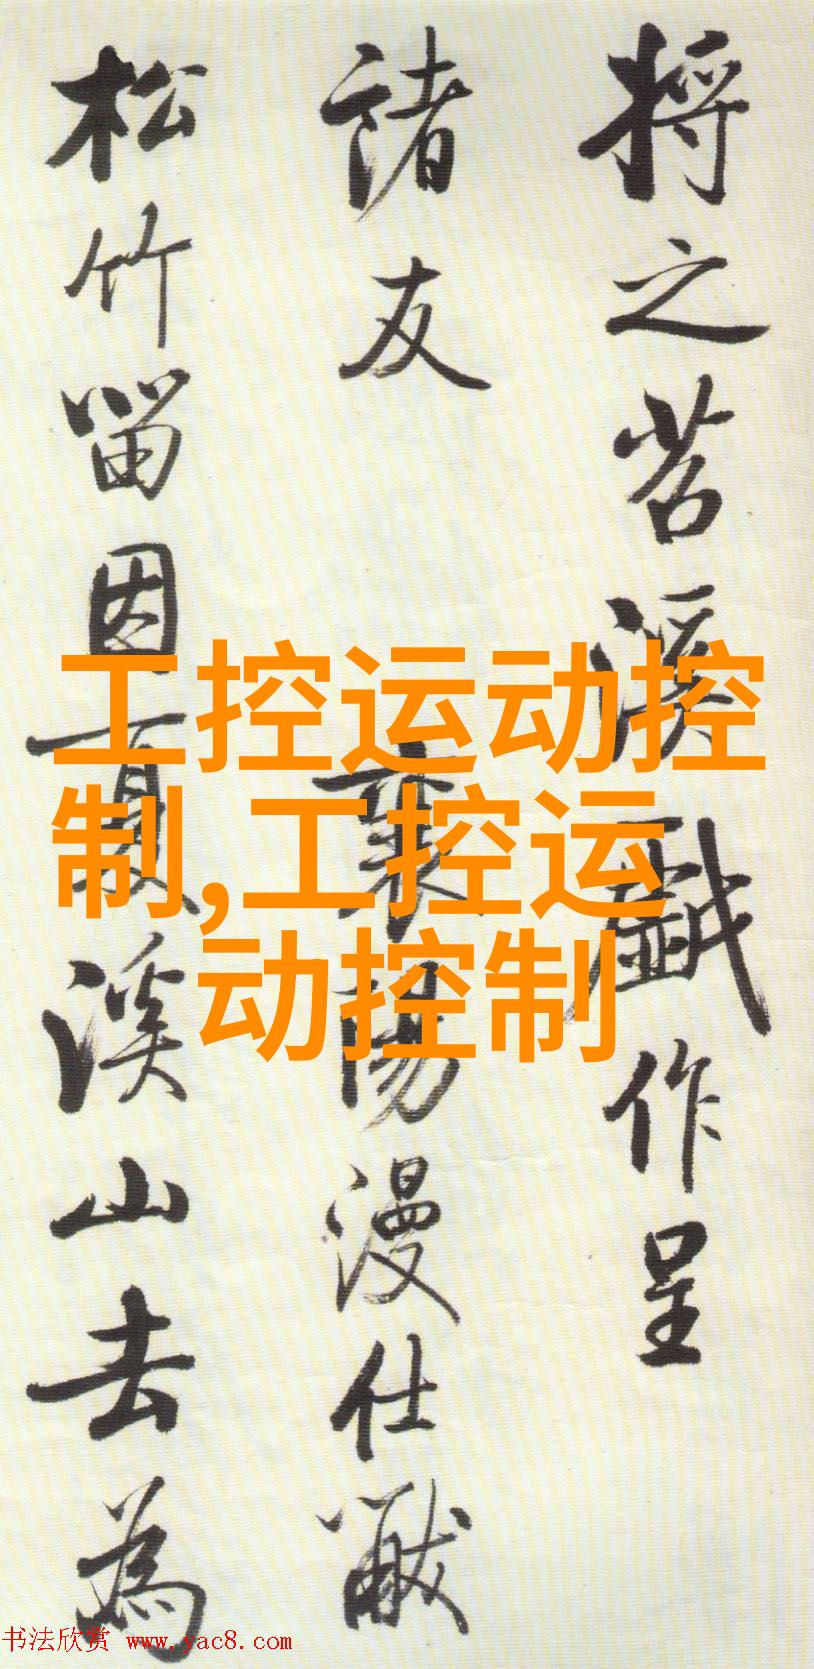 将之苕溪戲作呈
諸友
襄陽漫仕黻
松竹留因夏溪山去為
工控运动控
制,工控运
动控制
书法欣赏 www.yac8.com